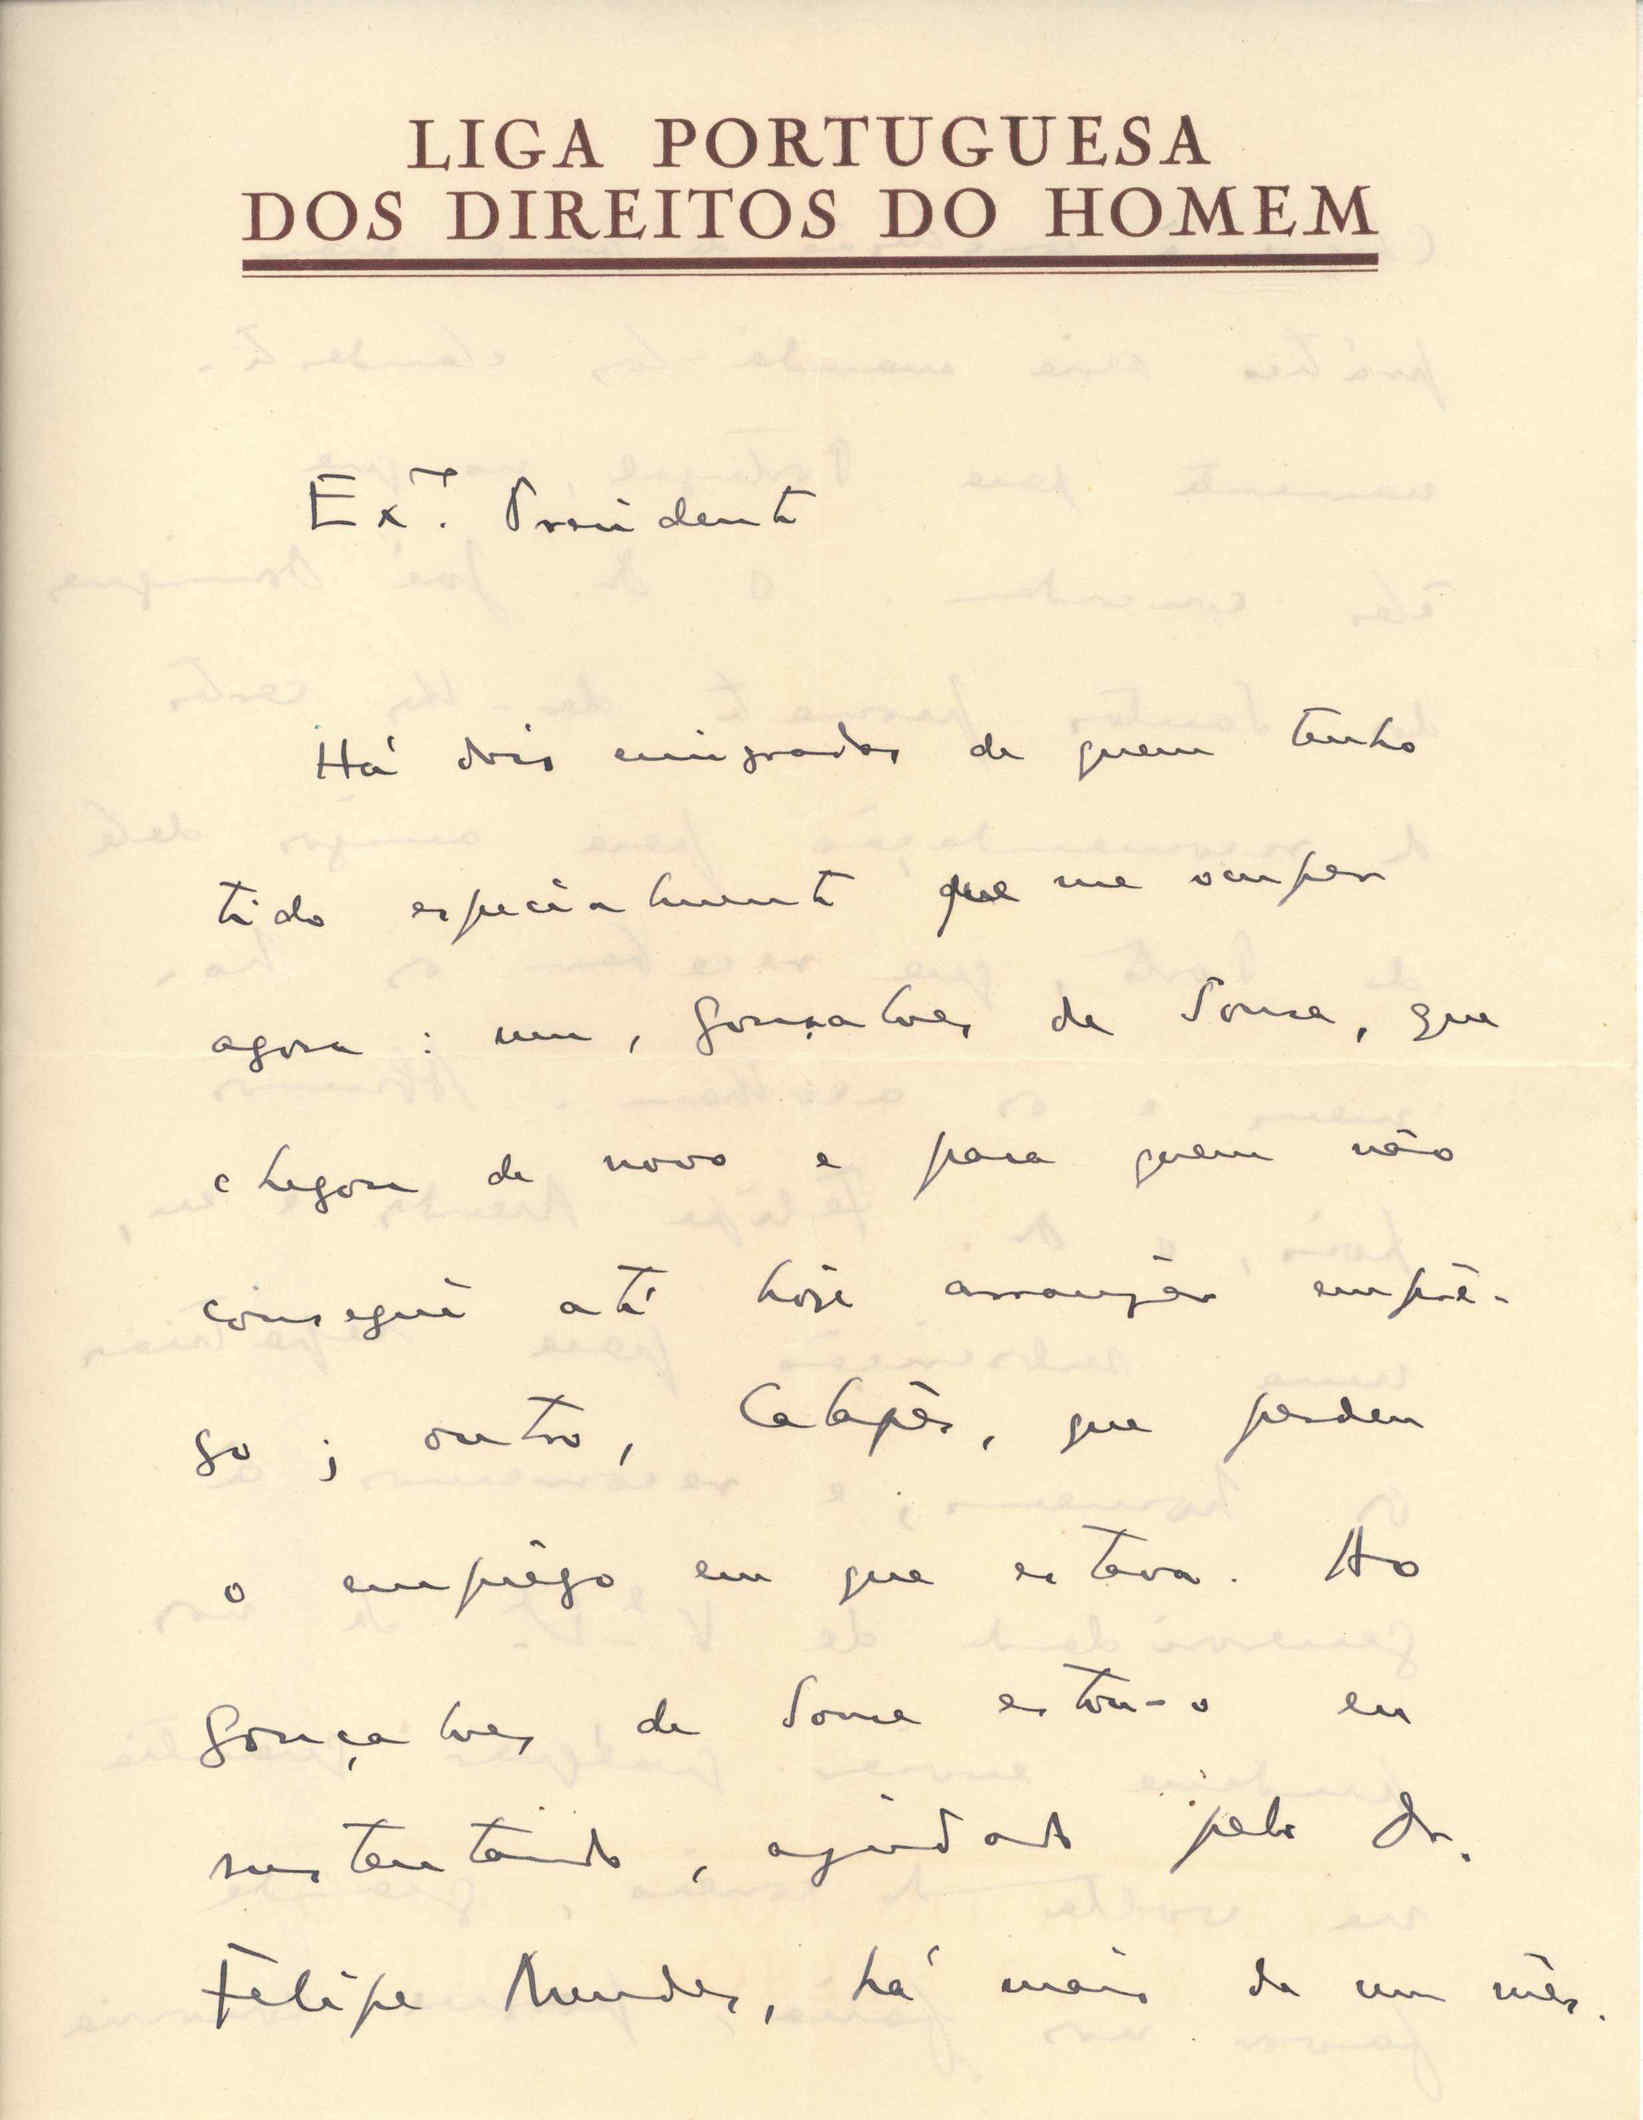 LIGA PORTUGUESA
DOS DIREITOS DO HOMEM
Ex.mo Presidente
Há dois emigrados de quem tenho
tido especialmente que me ocupar
agora: um, Gonçalves de Sousa, que
chegou de novo e para quem não
consegui até hoje arranjar emprê-
go; outro, Calapês, que perdeu
o emprêgo em que estava. Ao
Gonçalves de Sousa estou-o eu
sustentando, ajudado pelo Dr.
Felipe Mendes, há mais de um mês.